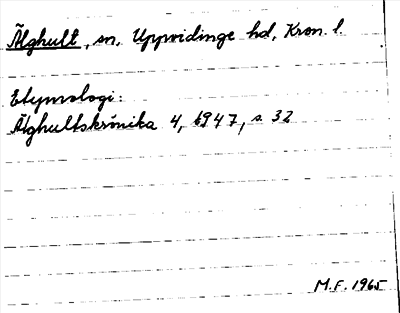 Älghult, sn, Uppvidinge hd, Kron. l.
Etymologi:
Älghultskrönika 4, 1947, s. 32
M.F. 1965